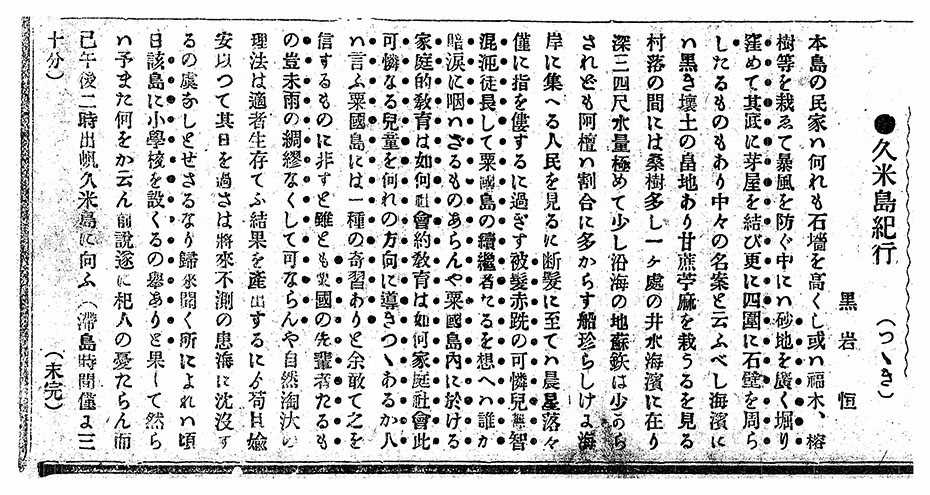 ●久米島紀行（つゝき）
黒岩恒
本島の民家ハ何れも石墻を高くし或ハ福木、榕
樹等を栽ゑて暴風を防ぐ中にハ砂地を廣く堀り
窪めて其底に茅屋を結び更に四圍に石壁を周ら
したるものもあり中々の名案と云ふべし海濱に
ハ黒き壤土の畠地あり甘蔗苧麻を栽うるを見る
村落の間には桑樹多し一ヶ處の井水海濱に在り
深三四尺水量極めて少し沿海の地蘇鉄は少から
されども阿檀ハ割合に多からす船珍らしけよ海
岸に集へる人民を見るに断髮に至てハ晨星落々
僅に指を僂するに過ぎす被髮赤跣の可憐兒無智
混沌徒長して粟國島の續繼者たるを想へハ誰か
暗涙に咽ハざるものあらんや粟國島內に於ける
家庭的敎育は如何社會約敎育は如何家庭社會此
可憐なる兒童を何れの方向に導きつゝあるか人
ハ言ふ粟國島には一種の奇習ありと余敢て之を
信するものに非すと雖とも粟國の先輩者たるも
の豈未雨の綢繆なくして可ならんや自然淘汰の
理法は適者生存てふ結果を產出するによ苟且婾
安以つて其日を過さは將來不測の患海に沈沒す
るの虞なしとせさるなり歸來聞く所によれハ頃
日該島に小學校を設くるの擧ありと果して然ら
ハ予また何をか云ん前說遂に杞人の憂たらん而
已午後二時出帆久米島に向ふ（滯島時間僅よ三
十分）（未完）